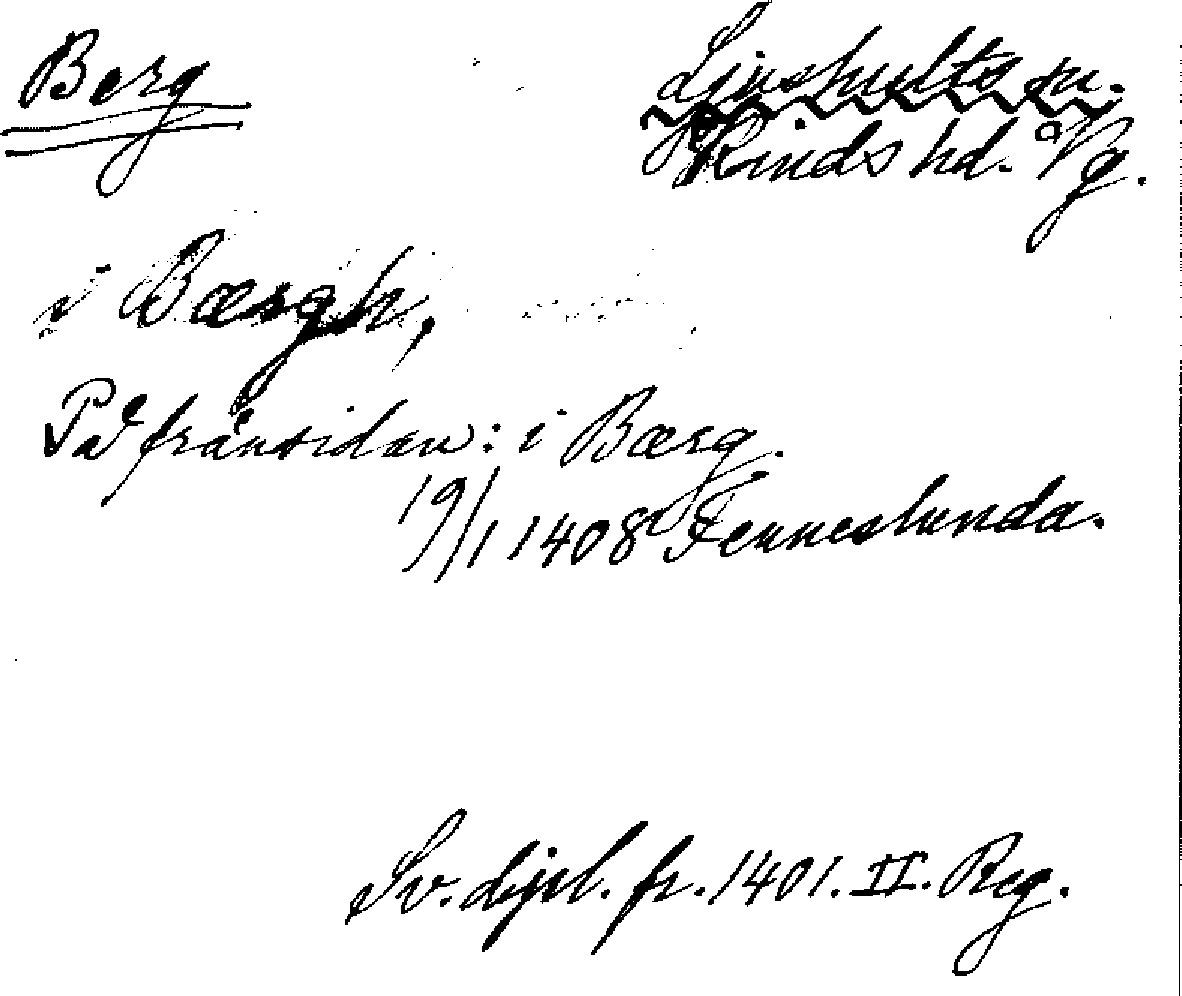 Berg
Ljushults sn.
Kinds hd. Vg.
i Bærgh,
På frånsidan: i Bærg.
19/1 1408 Fenneslunda.
Sv. dipl. fr. 1401. II. Reg.